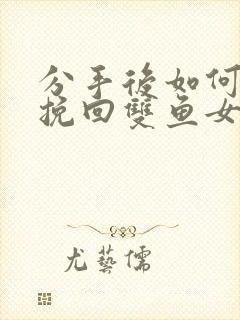 分手後如何
挽回雙鱼女
尤藝儒